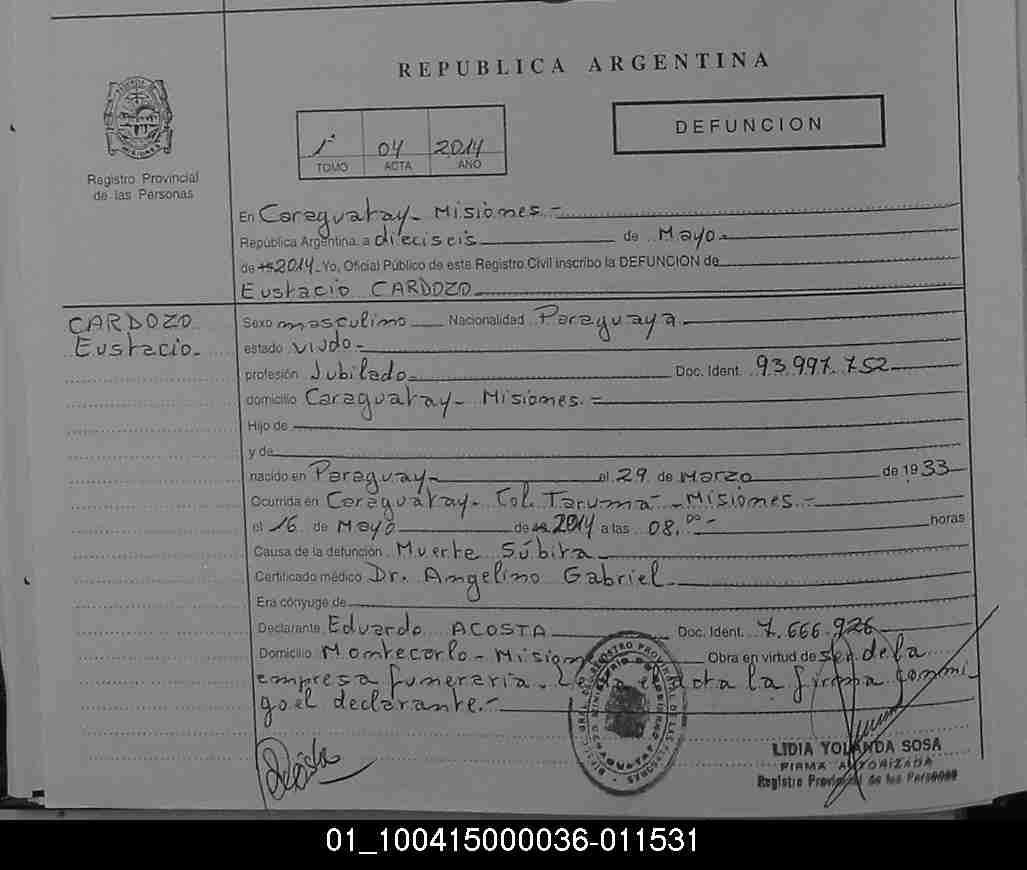 REPUBLICA ARGENTINA
DEFUNCION
04 2014
TOMO ACTA AÑO
MISIONES
Registro Provincial
de las Personas
En Caraguatay - Misiones.-
República Argentina, a dieciseis de Mayo
de 2014. Yo, Oficial Público de este Registro Civil inscribo la DEFUNCION de
Eustacio CARDOZO
CARDOZO
Eustacio.
Sexo masculino Nacionalidad Paraguaya
estado viudo.
profesión Jubilado Doc. Ident. 93.997.752
domicilio Caraguatay - Misiones.
Hijo de
y de
nacido en Paraguay el 29 de Marzo de 1933
Ocurrida en Caraguatay - Col. Tarumá - Misiones.
el 16 de Mayo de 2014 a las 08,00 horas
Causa de la defunción Muerte Súbita
Certificado médico Dr. Angelino Gabriel
Era cónyuge de
Declarante Eduardo ACOSTA Doc. Ident. 7.666.926
Domicilio Montecarlo - Obra en virtud de ser de la
empresa funeraria. la firma conmi-
go el declarante.-
LIDIA YOLANDA SOSA
FIRMA AUTORIZADA
Registro Provincial de las Personas
01_100415000036-011531